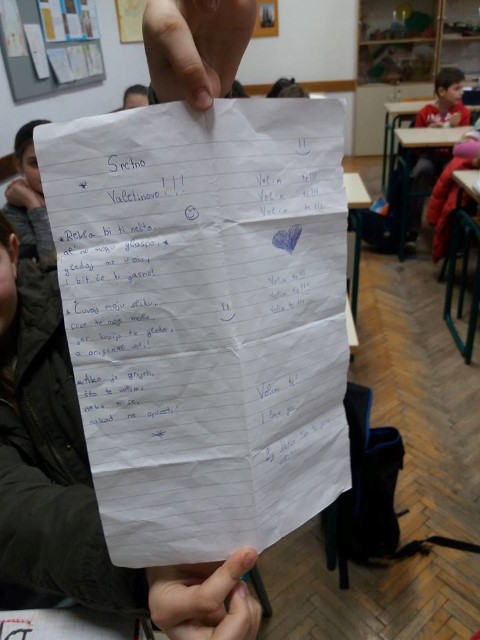 Sretno
Valetinovo!!!
Rekla bi ti nešto
al' ne mogu glasno,
gledaj me u oči,
i bit će ti jasno!
Čuvaj moju sliku,
čuva te moj
jer kopija te gleda,
a original voli!
Ako je grijeh,
što te volim,
neka mi se,
nikad ne oprosti!
Volim te!!!
Volim te!!!
Volim te!!!
Volim te!!!
Volim te!!!
Volim te!!!
Volim te!
I love you